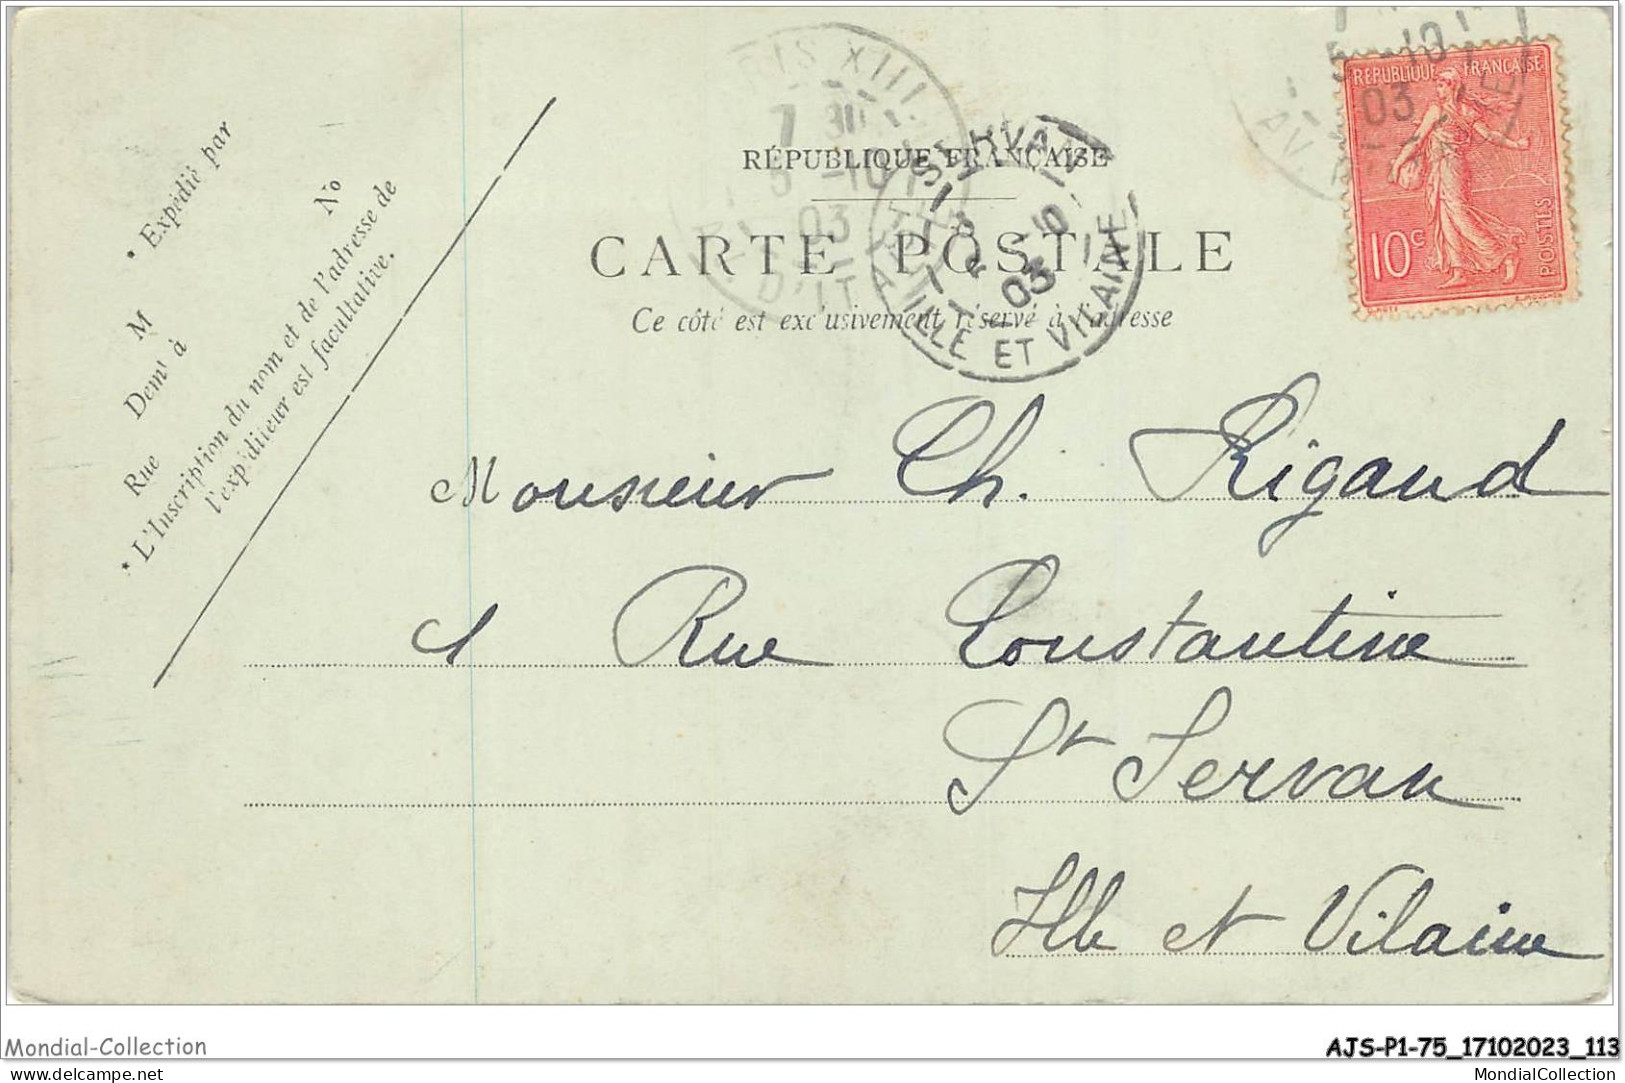 * Expédié par
M
Demt à
Rue
No
* L'Inscription du nom et de l'adresse de
l'expéditeur est facultative.
RÉPUBLIQUE FRANÇAISE
CARTE POSTALE
Ce côté est exclusivement réservé à l'adresse
PARIS XIII
7 30
5 -10
03
AV. D'ITALIE
ST SERVAN
-10
03
ILLE ET VILAINE
5 -10
03
AV.
RÉPUBLIQUE FRANÇAISE
10c
POSTES
Monsieur Ch. Rigaud
1 Rue Constantine
St Servan
Ille et Vilaine
Mondial-Collection
delcampe.net
AJS-P1-75_17102023_113
MondialCollection